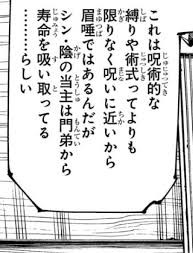 これは呪術的な
縛りや術式ってよりも
限りなく呪いに近いから
眉唾ではあるんだが
シン・陰の当主は門弟から
寿命を吸い取ってる
………らしい